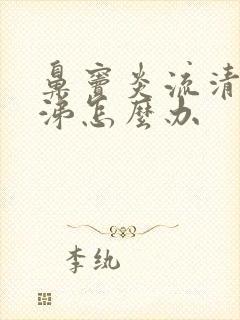 鼻窦炎流清
涕怎麽办
李纨